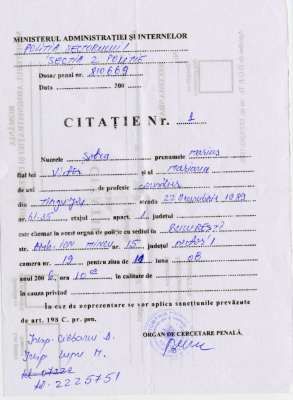 MINISTERUL ADMINISTRAȚIEI ȘI INTERNELOR
POLIȚIA SECTORULUI 1
SECȚIA 2 POLIȚIE
Dosar penal nr. 810669
Data 200
CITAȚIE Nr. 1
Numele prenumele Marius
fiul lui Victor și al Mariana
de ani de profesie
din strada 22 Decembrie 1989
nr. etajul apart. 1 județul
este chemat la acest organ de poliție cu sediul în BUCUREȘTI
str. Arh. Ion Mincu nr. 15 județul sector 1
camera nr. 19 pentru ziua de luna 08
anul 200 6 ora 10 în calitate de
în cauza privind
În caz de neprezentare se vor aplica sancțiunile prevăzute
de art. 198 C. pr. pen.
ORGAN DE CERCETARE PENALĂ,
Insp. D.
Insp. M.
tel. 2225751